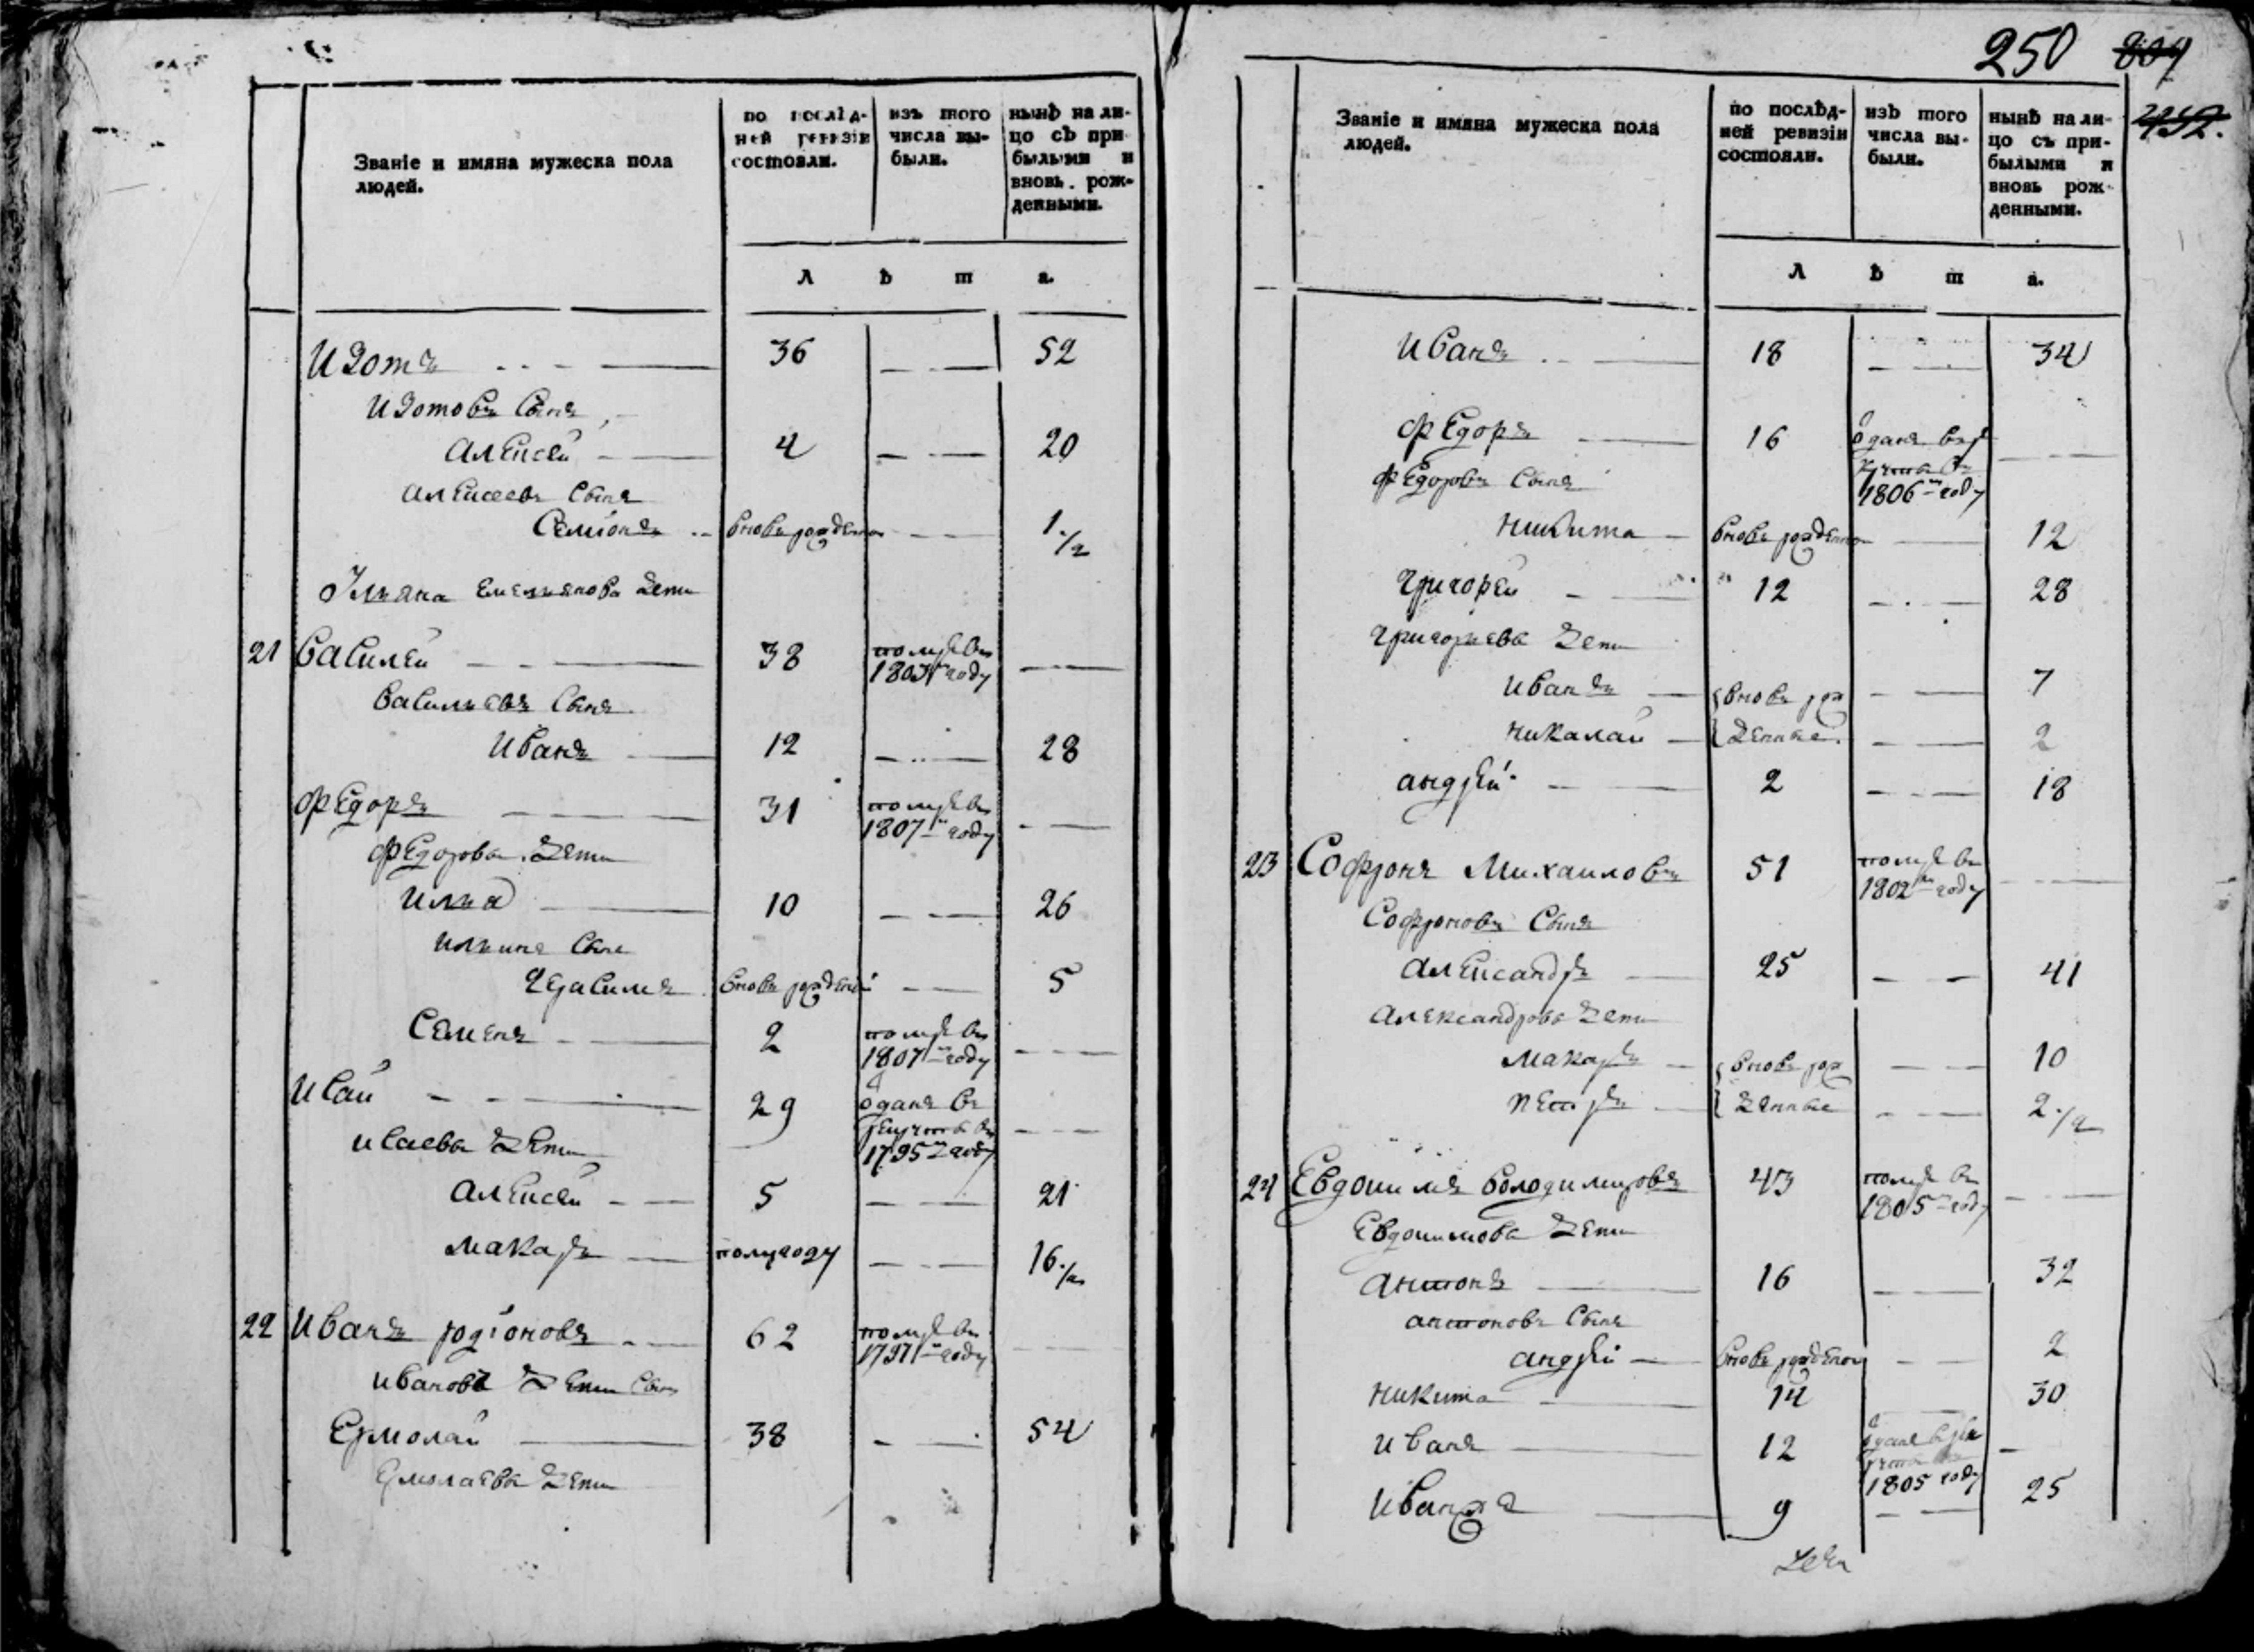 Званіе и имяна мужеска пола
людей.
по послѣд-
ней ревизіи
состояли.
изъ того
числа вы-
были.
нынѣ на ли-
цо съ при-
былыми и
вновь рож-
денными.
л ѣ т а.
Изотъ 36 52
Изотовъ Сынъ
Алексей 4 20
Алексеевъ Сынъ
Семіонъ вновь рожденной 1 1/2
Емельянова дети
21 Василей 38 помре въ
году
Васильевъ Сынъ
Иванъ 12 28
Федоръ 31 помре въ
1807м году
Федорова дети
Илья 10 26
Ильинъ Сынъ
Герасимъ вновь рожденой 5
Семенъ 2 помре въ
1807м году
Исай 29 оданъ въ
рекруты въ
1795м году
Исаева дети
Алексей 5 21
Макаръ полугоду 16 1/2
22 Иванъ родіоновъ 62 помре въ
1797м году
Иванова дети Сынъ
Ермолай 38 54
Ермолаева дети
250 809
252.
Званіе и имяна мужеска пола
людей.
по послѣд-
ней ревизіи
состояли.
изъ того
числа вы-
были.
нынѣ на ли-
цо съ при-
былыми и
вновь рож-
денными.
л ѣ т а.
Иванъ 18 34
Федоръ 16 оданъ въ ре
круты въ
1806м году
Федоровъ Сынъ
Никита вновь рожденной 12
Григорей 12 28
Григорьева дети
Иванъ вновь рож 7
Никалай денные 2
андрей 2 18
23 Софронъ Михаиловъ 51 помре въ
1802м году
Софроновъ Сынъ
Александръ 25 41
Александрова дети
Макаръ вновь рож 10
Петръ денные 2 1/2
24 Евдокимъ Володимировъ 43 помре въ
1805м году
Евдокимова дети
антонъ 16 32
антоновъ Сынъ
андрей вновь рожденой 2
Никита 14 30
Иванъ 12 оданъ в ре
круты въ
1805 году
Иванъ же 9 25